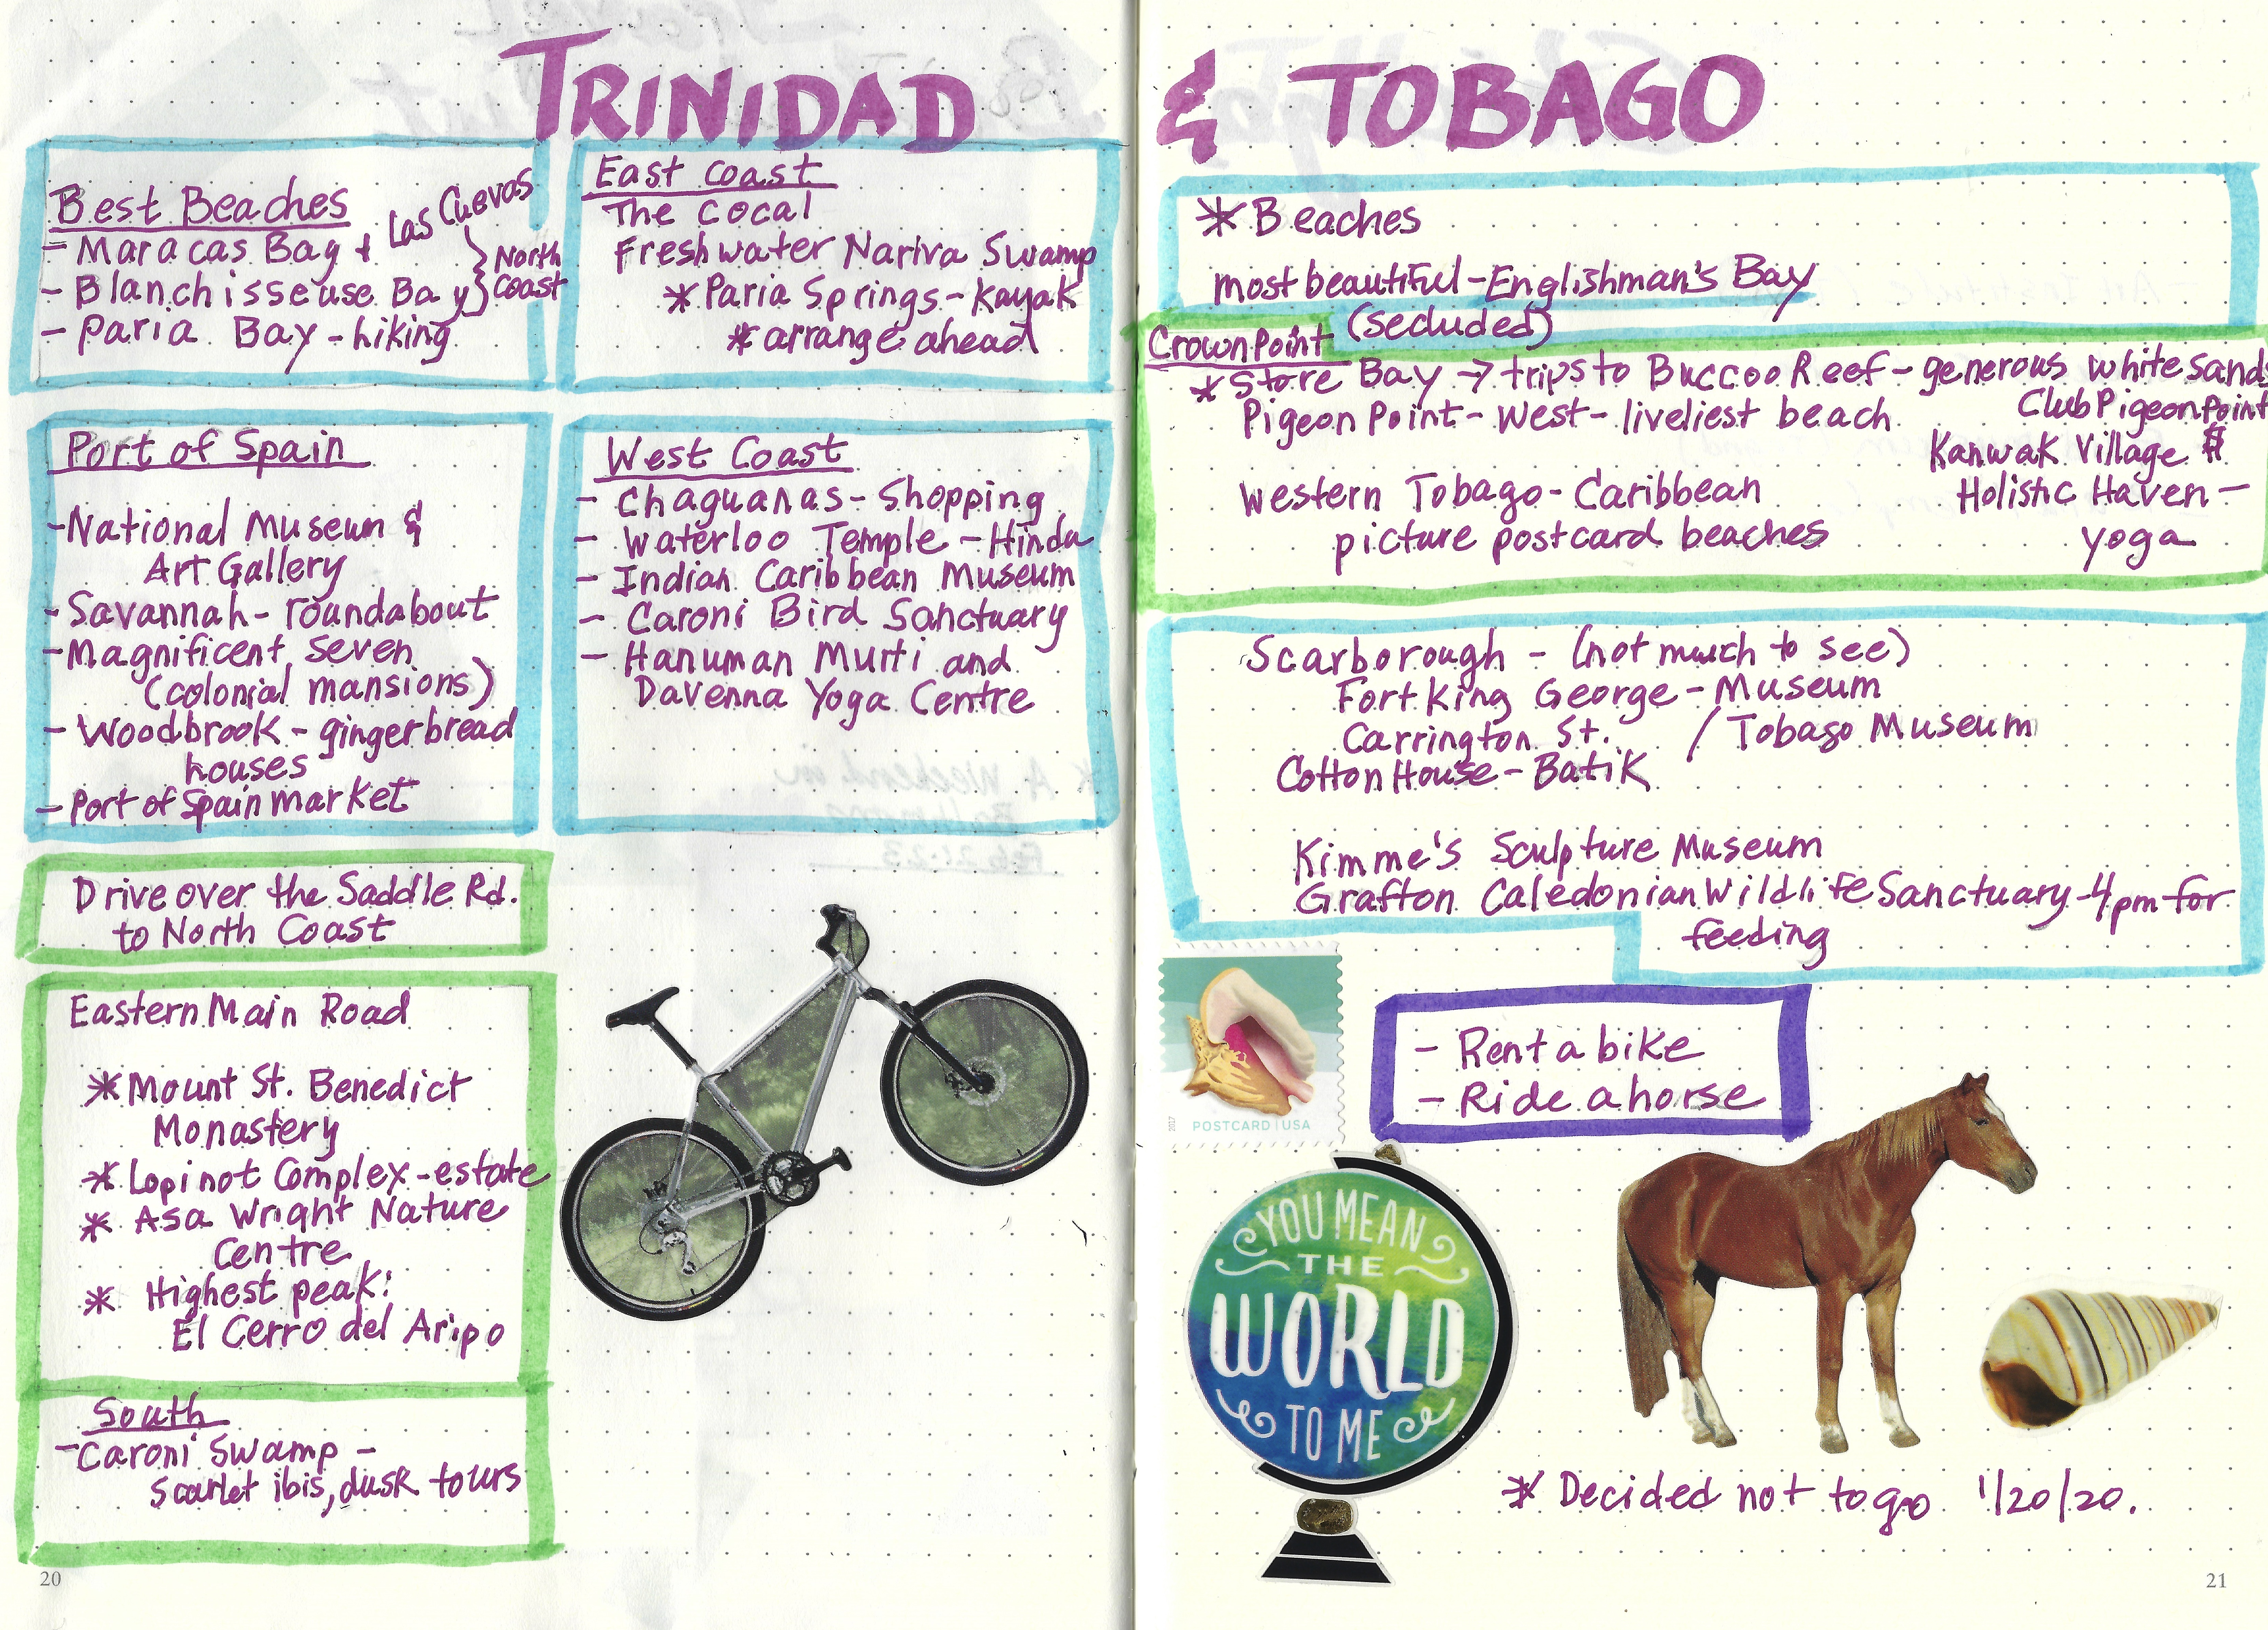 TRINIDAD
Best Beaches
- Maracas Bay & Las Cuevas
- Blanchisseuse Bay } North Coast
- Paria Bay - hiking
East Coast
The Cocal
Freshwater Nariva Swamp
* Paria Springs - Kayak
* arrange ahead
Port of Spain
- National Museum &
Art Gallery
- Savannah - roundabout
- Magnificent Seven
(colonial mansions)
- Woodbrook - gingerbread
houses
- Port of Spain market
West Coast
- Chaguanas - Shopping
- Waterloo Temple - Hindu
- Indian Caribbean Museum
- Caroni Bird Sanctuary
- Hanuman Murti and
Davenna Yoga Centre
Drive over the Saddle Rd.
to North Coast
Eastern Main Road
* Mount St. Benedict
Monastery
* Lopinot Complex - estate
* Asa Wright Nature
Centre
* Highest peak:
El Cerro del Aripo
South
- Caroni Swamp -
Scarlet ibis, dusk tours
20
& TOBAGO
* Beaches
most beautiful - Englishman's Bay
(secluded)
Crown Point
* Store Bay → trips to Buccoo Reef - generous white sands
Pigeon Point - West - liveliest beach
Club Pigeon Point
Kanwak Village $
Holistic Haven -
yoga
Western Tobago - Caribbean
picture postcard beaches
Scarborough - (not much to see)
Fort King George - Museum
Carrington St. / Tobago Museum
Cotton House - Batik
Kimme's Sculpture Museum
Grafton Caledonian Wildlife Sanctuary - 4pm for
feeding
2017
POSTCARD | USA
- Rent a bike
- Ride a horse
YOU MEAN
THE
WORLD
TO ME
* Decided not to go 1/20/20.
21